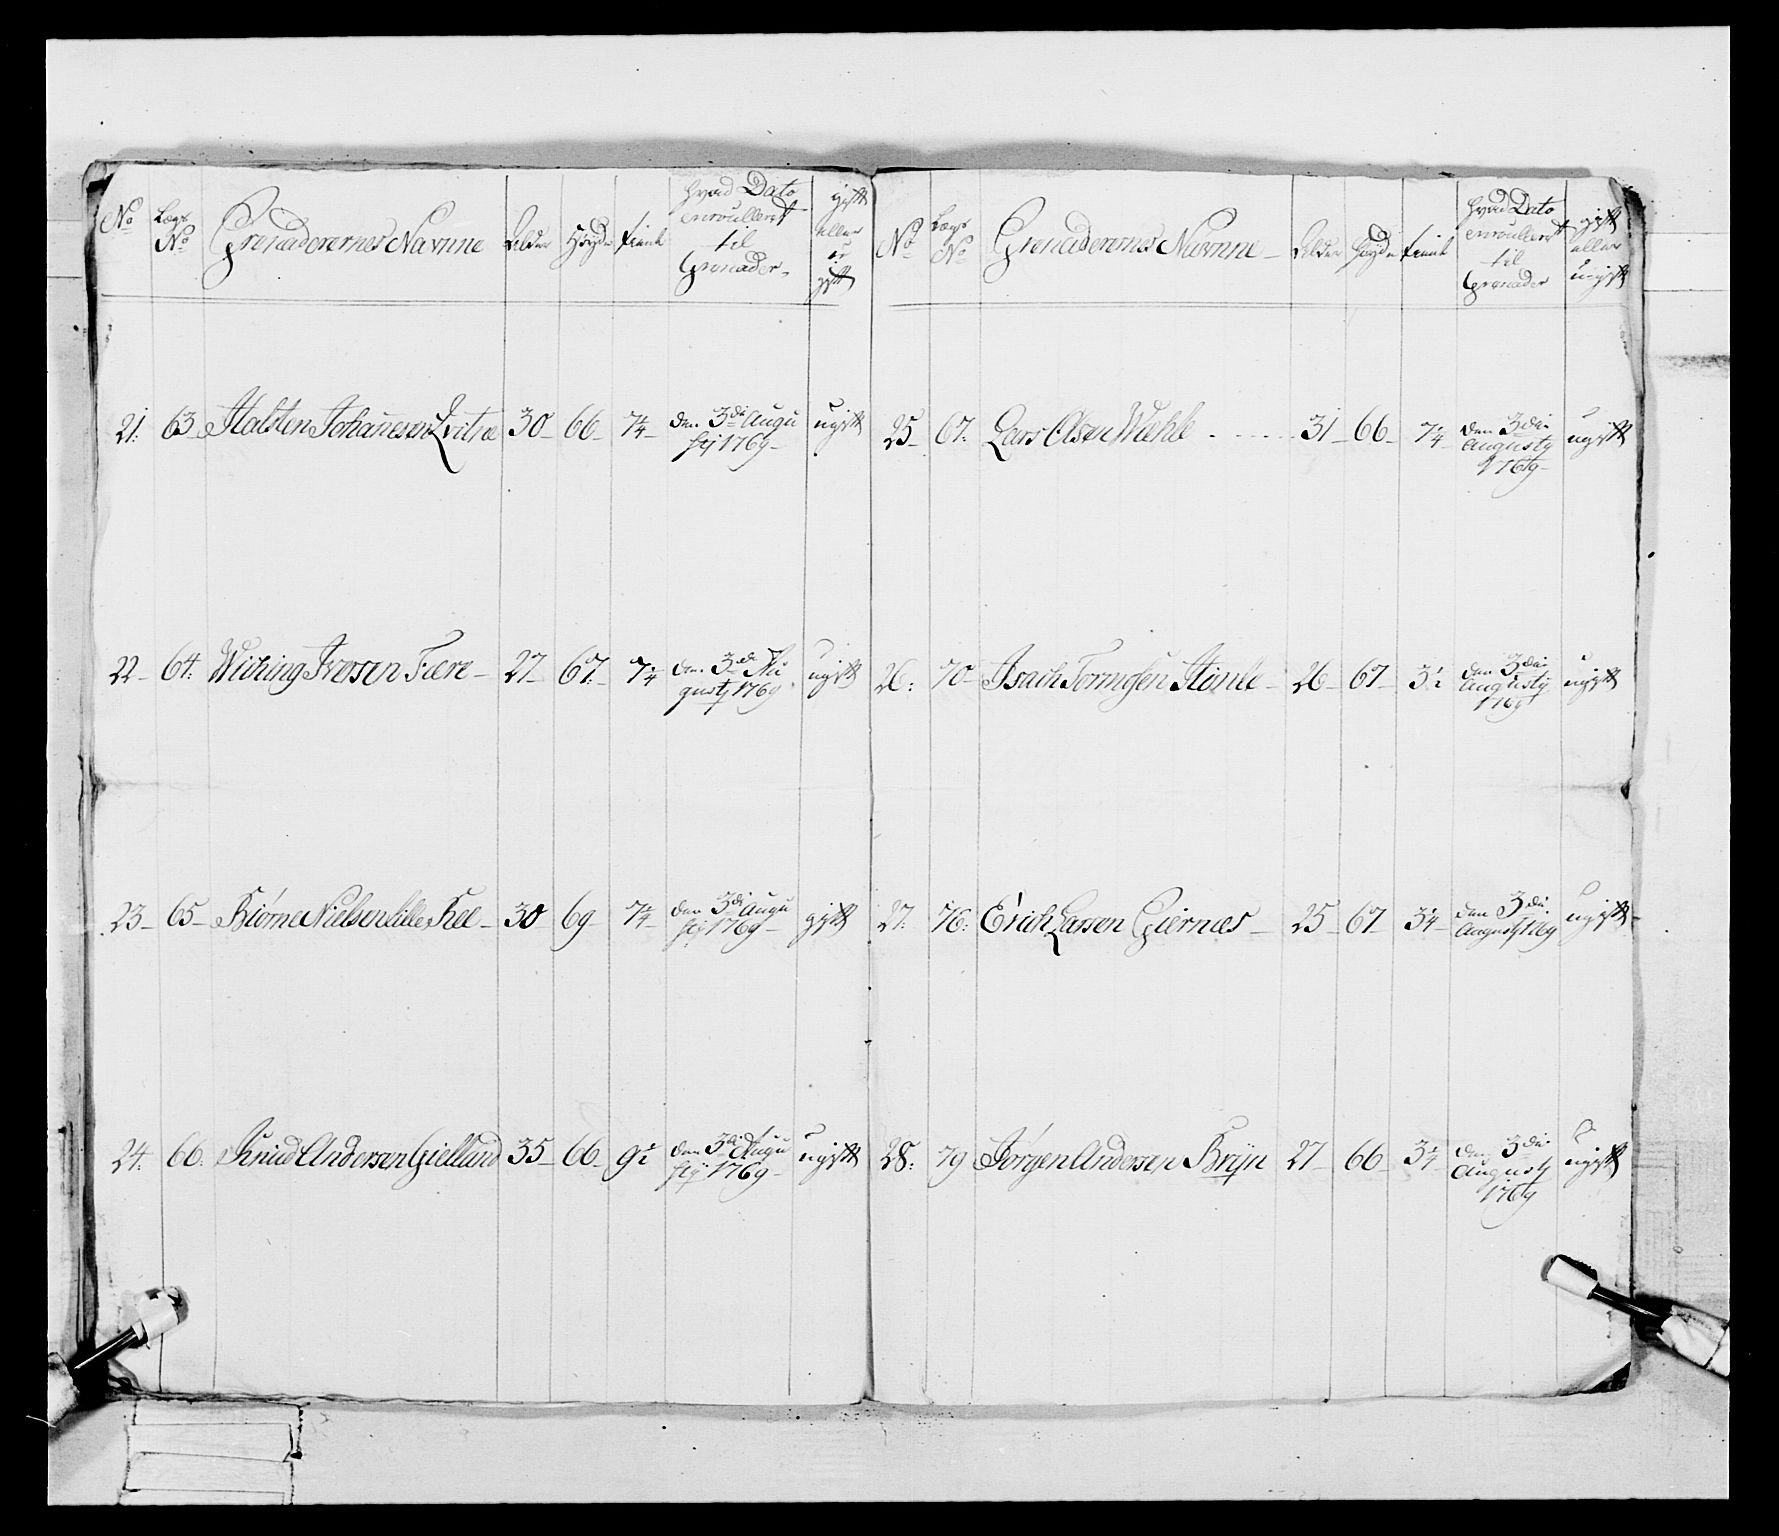 No Lægs No Grenaderernes Navnne Alder Høyde tient hvad Dato enroulleret til Grenader gift eller u-gift
21: 63 Halsten Johannesen Qvitne 30 66 7¼ den 3die Augustij 1769 ugift
22 64: Wiching Iversen Fære 27 67 7¼ den 3die Augustj 1769 ugift
23 65 Biørne Nielsen lille Ree 30 69 7¼ den 3die Augustij 1769 gift
24: 66: Knud Andersen Gielland 35 66 9½ den 3die Augustij 1769 ugift
No Lægs No Grenaderernes Navnne Alder Høyde tient hvad Dato enroulleret til Grenader gift eller u-gift
25 67: Lars Olsen Wæhle 31 66 7¼ den 3die Augustij 1769 ugift
26: 70 Isach 26 67 3½ den 3die Augustij 1769 ugift
27: 76: Erich Larsen Giernæs 25 67 3¼ den 3die Augustj 1769 ugift
28: 79 Jørgen Andersen Bryn 27 66 3¼ den 3die Augustj 1769 ugift